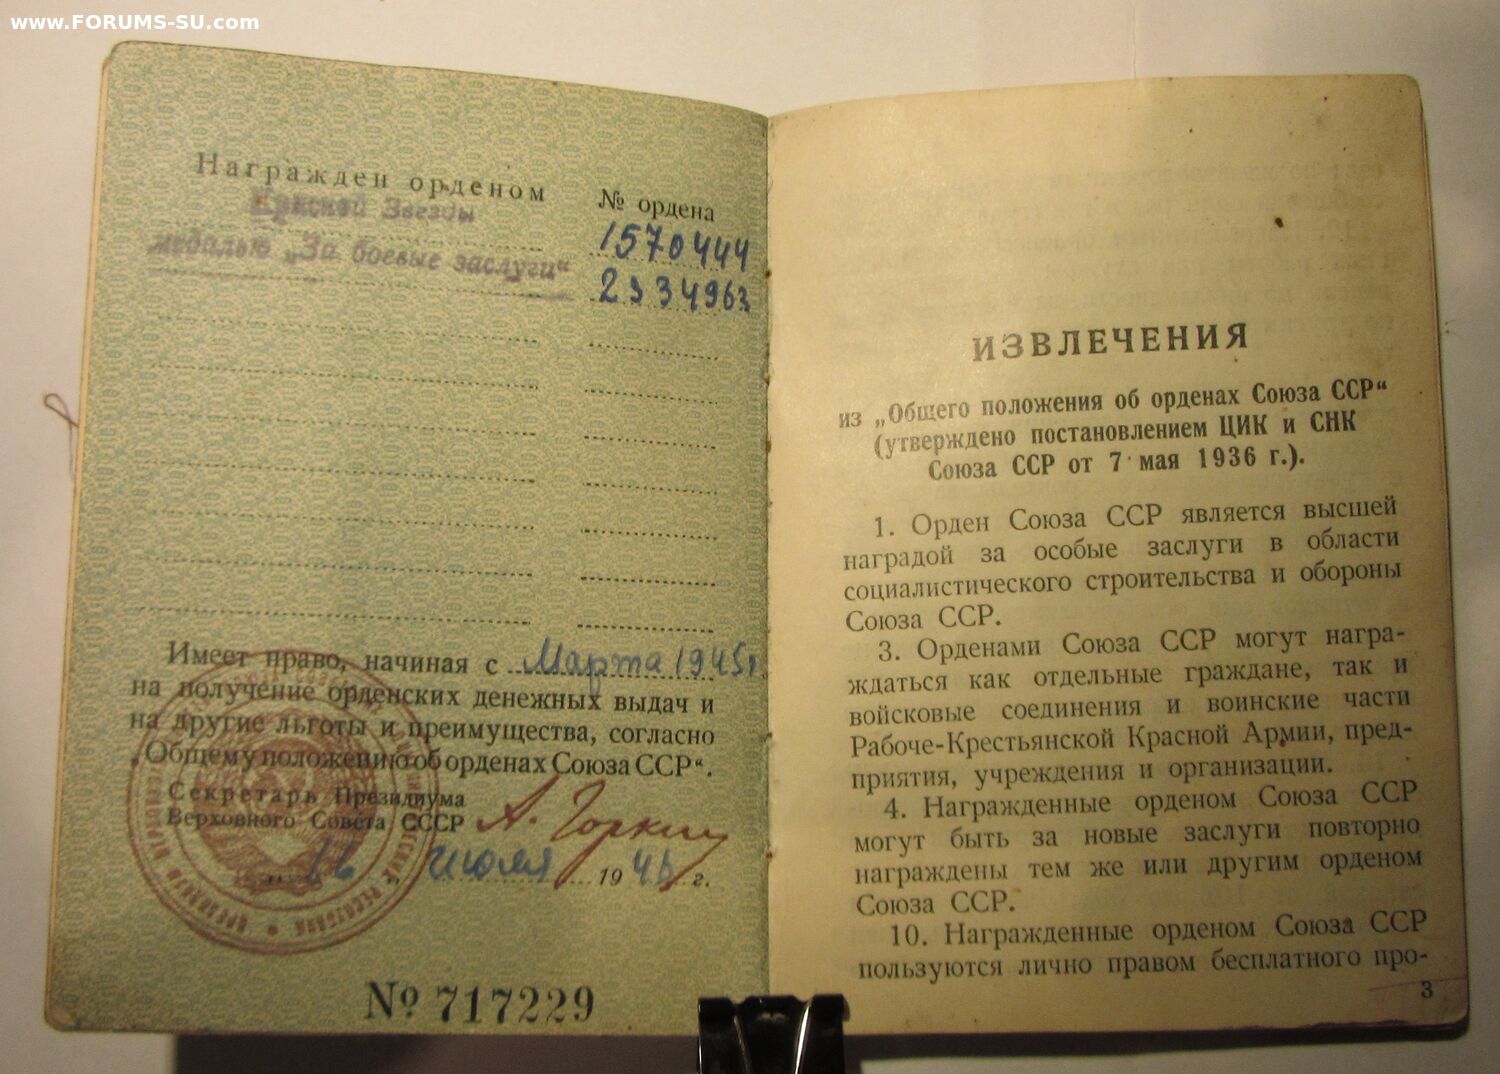 www.FORUMS-SU.com
Награжден орденом
№ ордена
Красной Звезды
1570444
медалью „За боевые заслуги“
2934963
Имеет право, начиная с Марта 1945г.
на получение орденских денежных выдач и
на другие льготы и преимущества, согласно
„Общему положению об орденах Союза ССР“.
Секретарь Президиума
Верховного Совета СССР А. Горкин
„16„ июля 1946 г.
№ 717229
ИЗВЛЕЧЕНИЯ
из „Общего положения об орденах Союза ССР“
(утверждено постановлением ЦИК и СНК
Союза ССР от 7 мая 1936 г.).
1. Орден Союза ССР является высшей
наградой за особые заслуги в области
социалистического строительства и обороны
Союза ССР.
3. Орденами Союза ССР могут награ-
ждаться как отдельные граждане, так и
войсковые соединения и воинские части
Рабоче-Крестьянской Красной Армии, пред-
приятия, учреждения и организации.
4. Награжденные орденом Союза ССР
могут быть за новые заслуги повторно
награждены тем же или другим орденом
Союза ССР.
10. Награжденные орденом Союза ССР
пользуются лично правом бесплатного про-
3